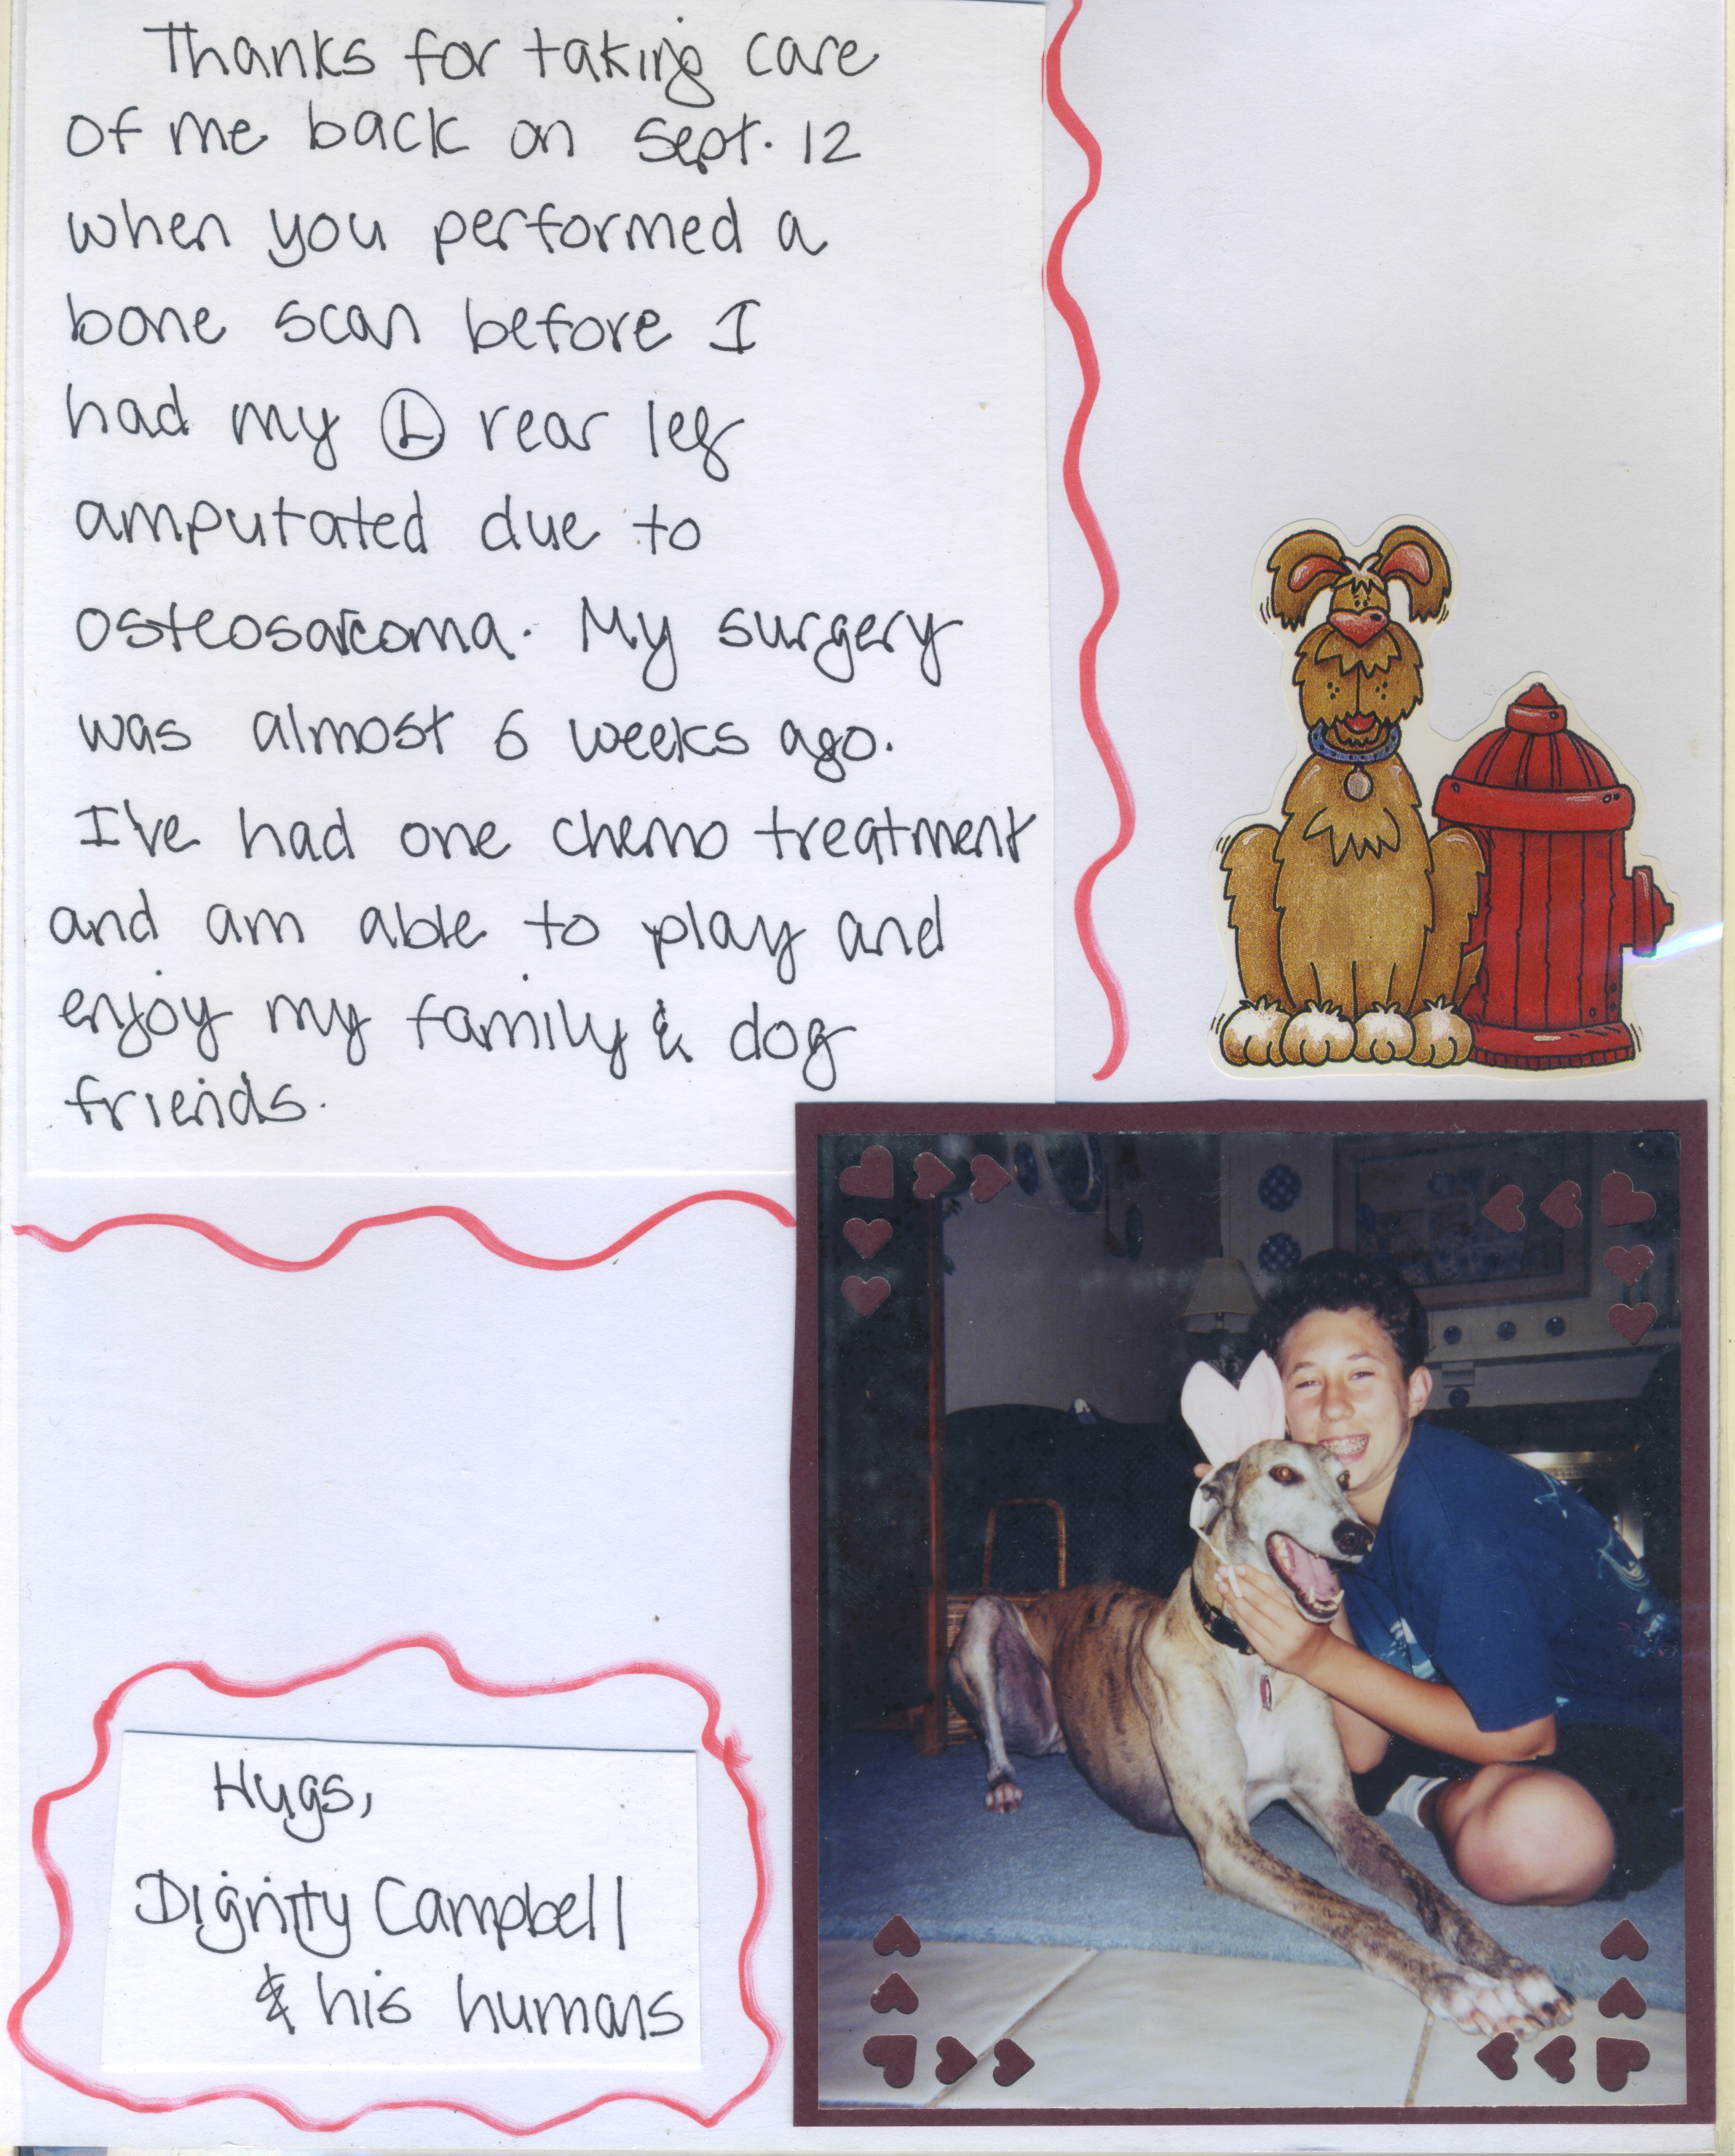 Thanks for taking care
of me back on Sept. 12
when you performed a
bone scan before I
had my Ⓛ rear leg
amputated due to
osteosarcoma. My surgery
was almost 6 weeks ago.
I've had one chemo treatment
and am able to play and
enjoy my family & dog
friends.
Hugs,
Dignity Campbell
& his humans